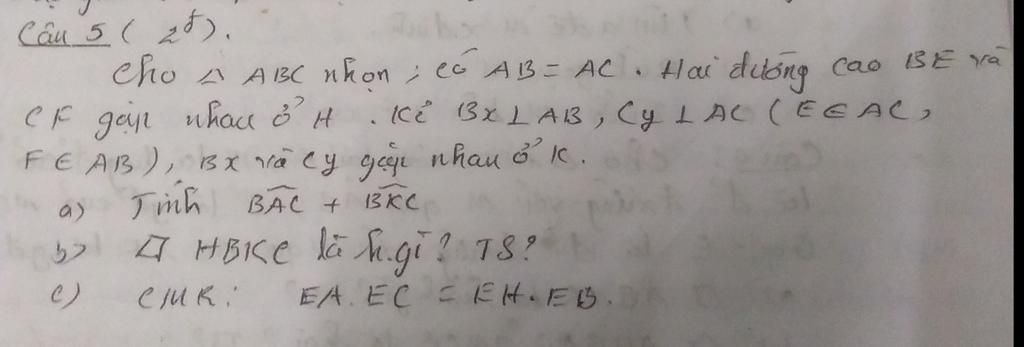 Câu 5 ( 2đ ).
Cho △ ABC nhọn ; có AB = AC . Hai đường cao BE và
CF gặp nhau ở H . Kẻ Bx ⊥ AB , Cy ⊥ AC ( E ∈ AC ,
F ∈ AB ) , Bx và Cy gặp nhau ở K .
a) Tính BÂC + BK̂C
b) HBKC là h.gì ? TS ?
c) CMR : EA . EC = EH . EB .